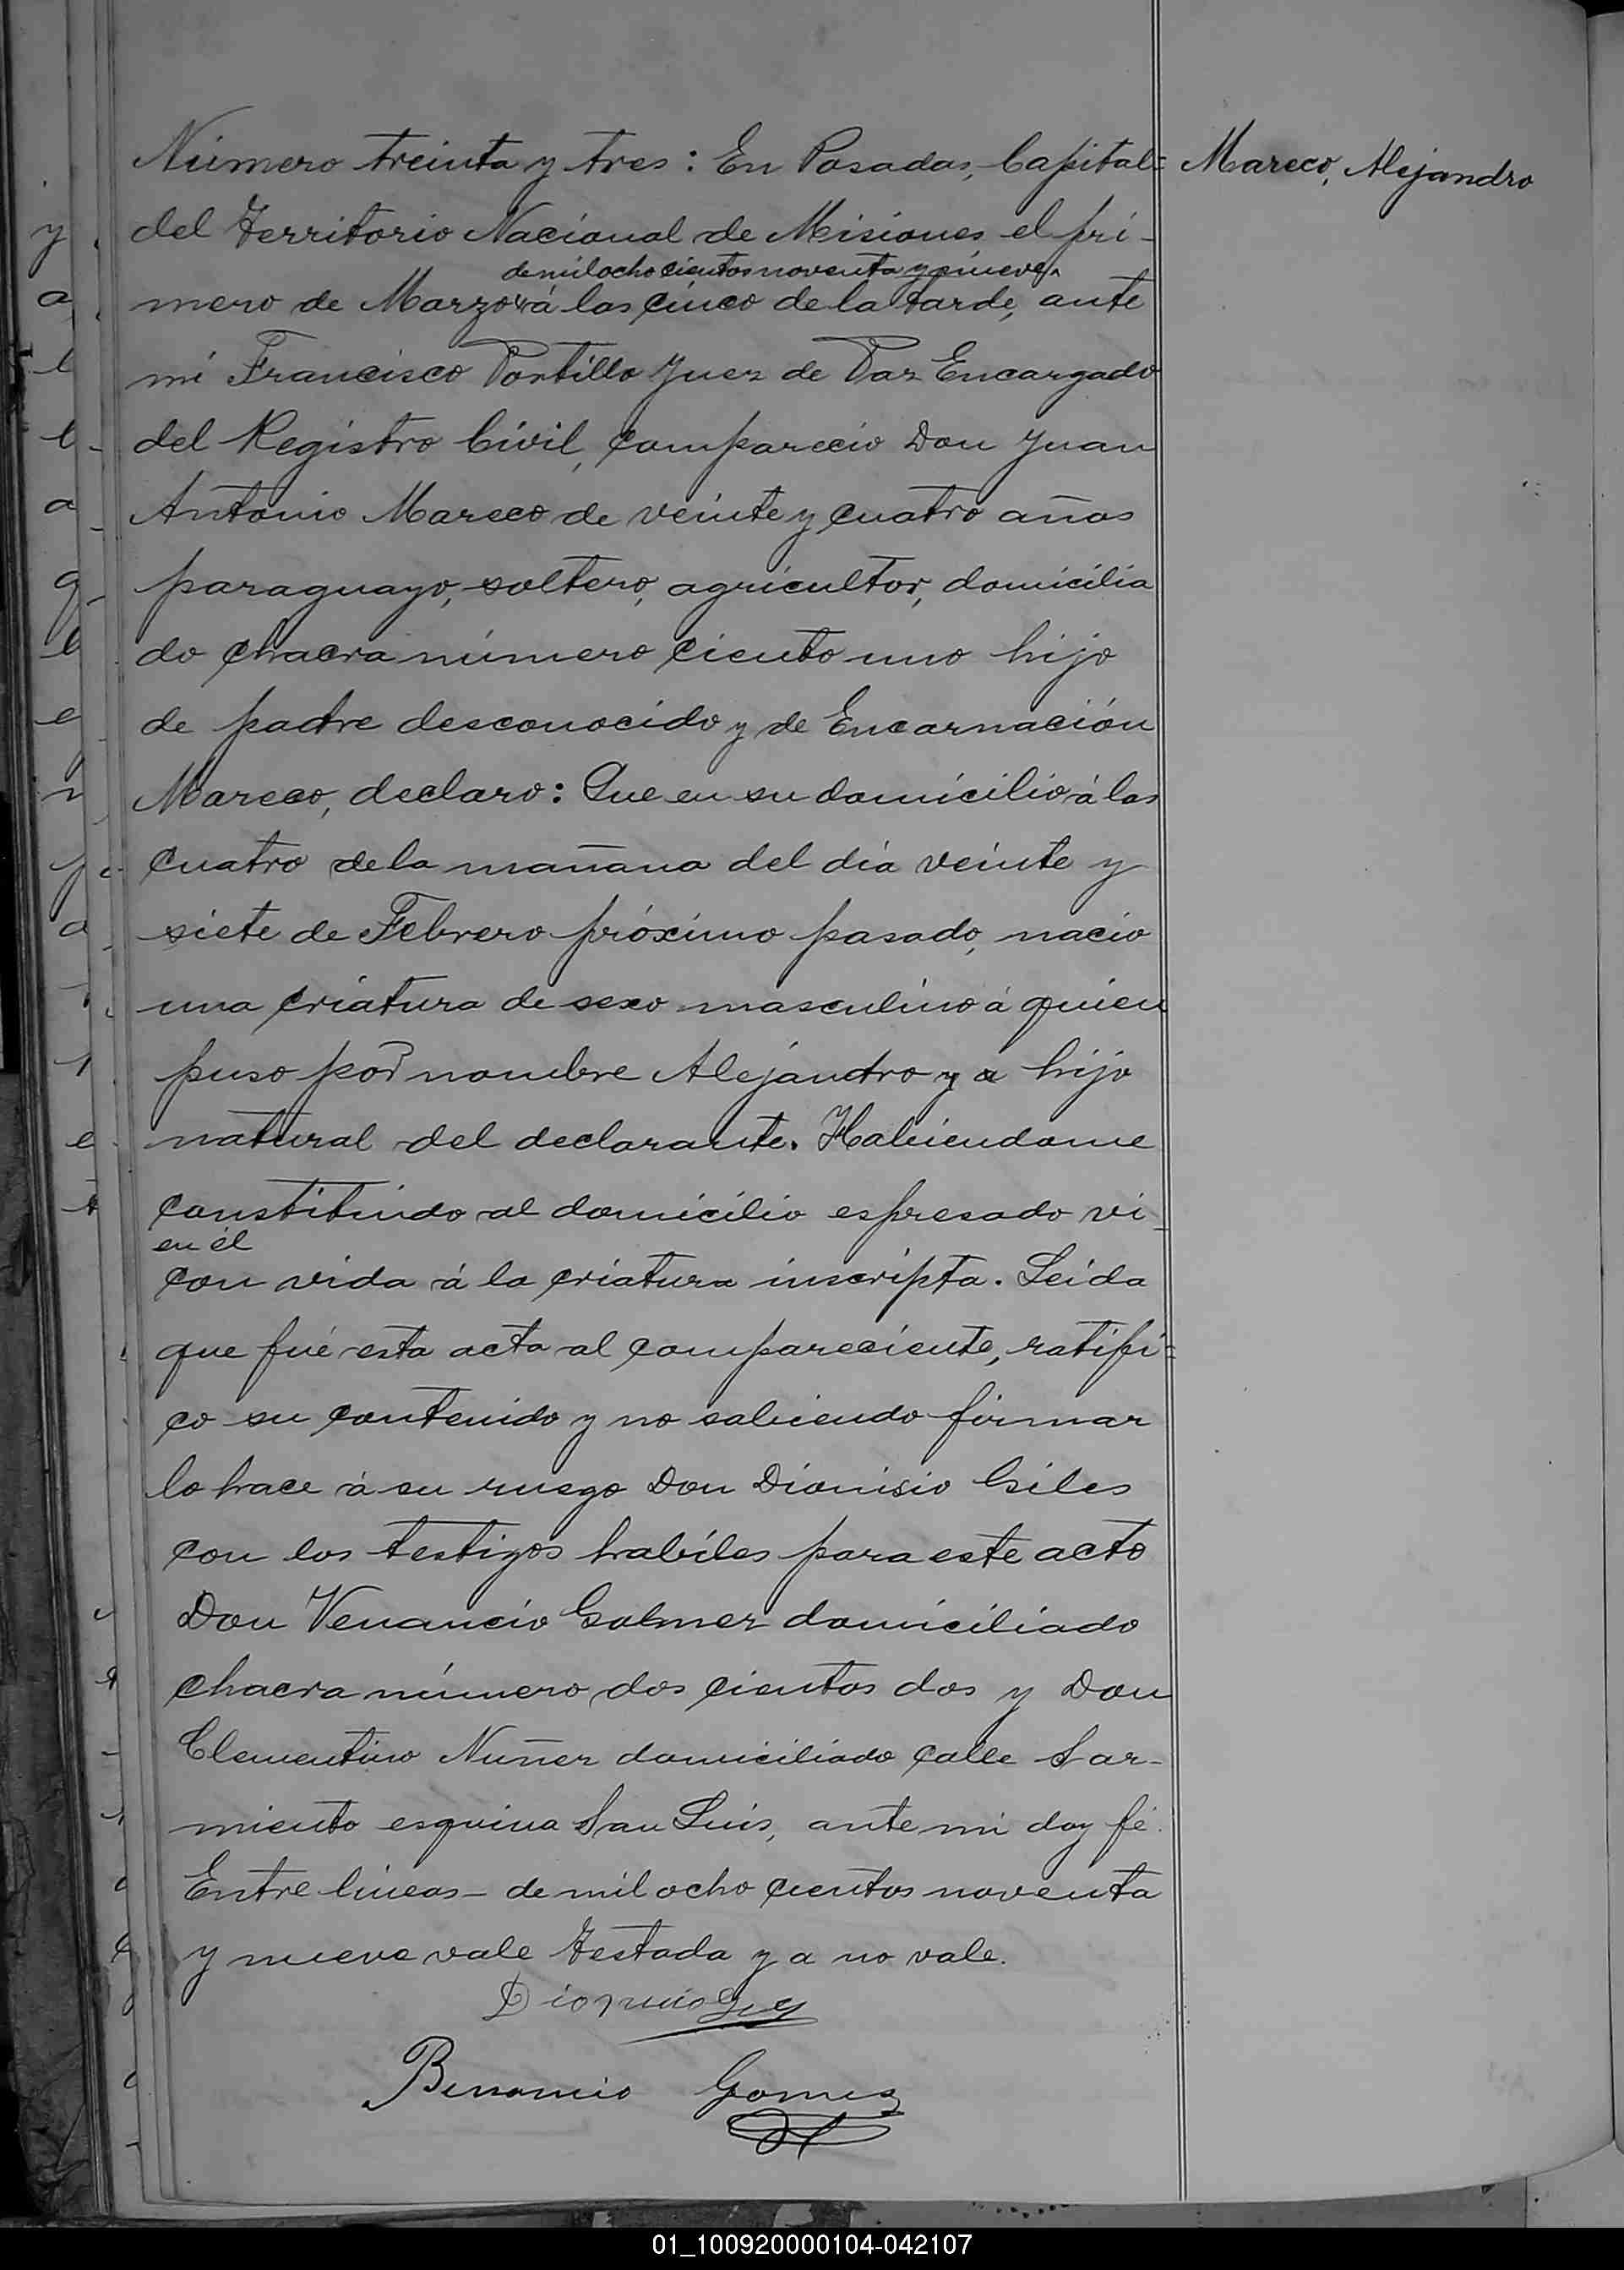 Número treinta y tres: En Posadas, Capital=
Mareco, Alejandro
del Territorio Nacional de Misiones el pri-
de mil ocho cientos noventa y nueve
mero de Marzo á las cinco de la tarde, ante
mi Francisco Portillo Juez de Paz Encargado
del Registro Civil, comparecio Don Juan
Antonio Mareco de veinte y cuatro años
paraguayo, soltero, agricultor, domicilia
do chacra número ciento uno hijo
de padre desconocido y de Encarnación
Mareco, declaro: Que en su domicilio á las
cuatro de la mañana del dia veinte y
siete de Febrero próximo pasado, nacio
una criatura de sexo masculino á quien
puso por nombre Alejandro y a hijo
natural del declarante. Habiendome
constituido al domicilio espresado vi-
en él
con vida á la criatura inscripta. Leida
que fué esta acta al compareciente, ratifi=
co su contenido y no sabiendo firmar
lo hace á su ruego Don Dionisio Giles
con los testigos habiles para este acto
Don Venancio domiciliado
chacra número dos cientos dos y Don
Clementino Nuñez domiciliado calle Sar-
miento esquina San Luis, ante mi doy fé.
Entre lineas - de mil ocho cientos noventa
y nueve vale Testada y a no vale.
Benancio Gomez
01_100920000104-042107